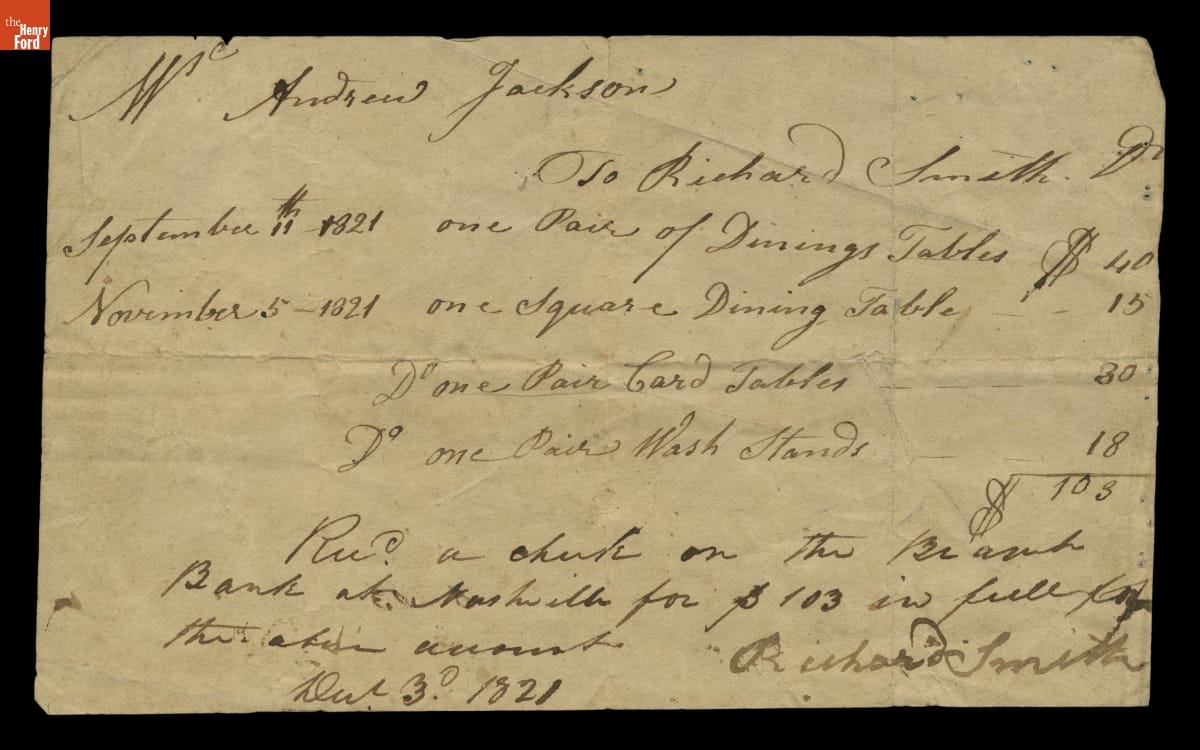 the
Henry
Ford
Mrs Andrew Jackson
To Richard Smith. Dr
September 11th 1821 one Pair of Dinings Tables $ 40
November 5 - 1821 one Square Dining Table - - 15
Do one Pair Card Tables 30
Do one Pair Wash Stands 18
$ 103
Recd. a check on the Branch
Bank at Nashville for $103 in full for
the above amount
Richard Smith
Decr. 3d. 1821